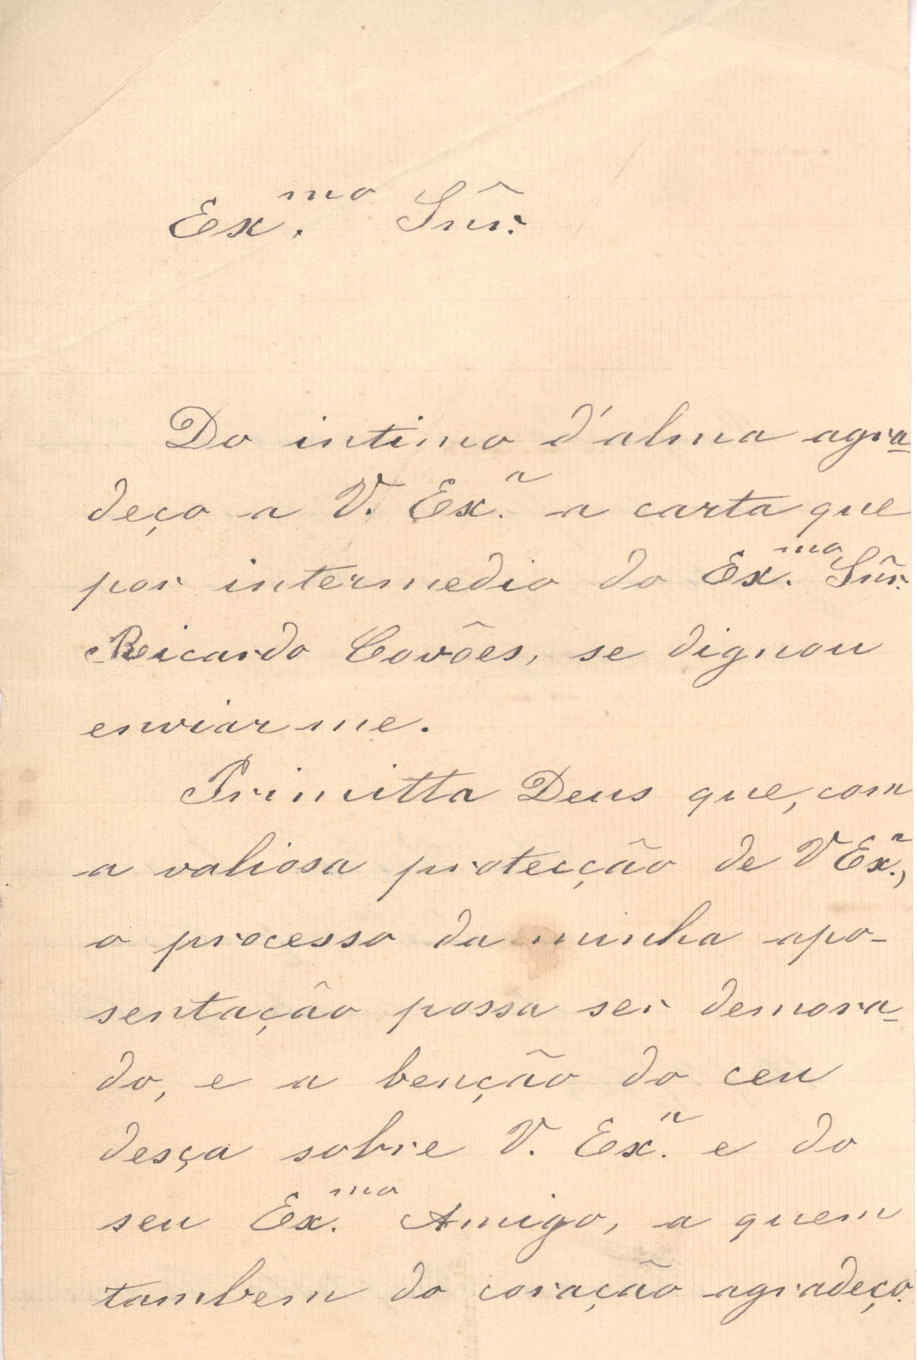 Ex.mo Snr̃.
Do intimo d'alma agra-
deço a V. Ex.a a carta que
por intermedio do Ex.mo Snr̃.
Ricardo Covões, se dignou
enviar me.
Primitta Deus que, com
a valiosa protecção de V Ex.a,
o processo da minha apo-
sentação possa ser demora-
do, e a benção do ceu
desça sobre V. Ex.a e do
seu Ex.mo Amigo, a quem
tambem do coração agradeço.